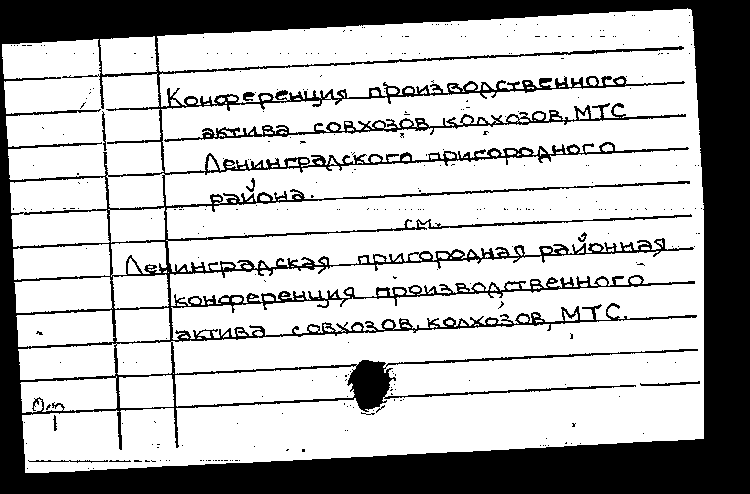 Конференция производственного
актива совхозов, колхозов, МТС
Ленинградского пригородного
района.
см.
Ленинградская пригородная районная
конференция производственного
актива совхозов, колхозов, МТС.